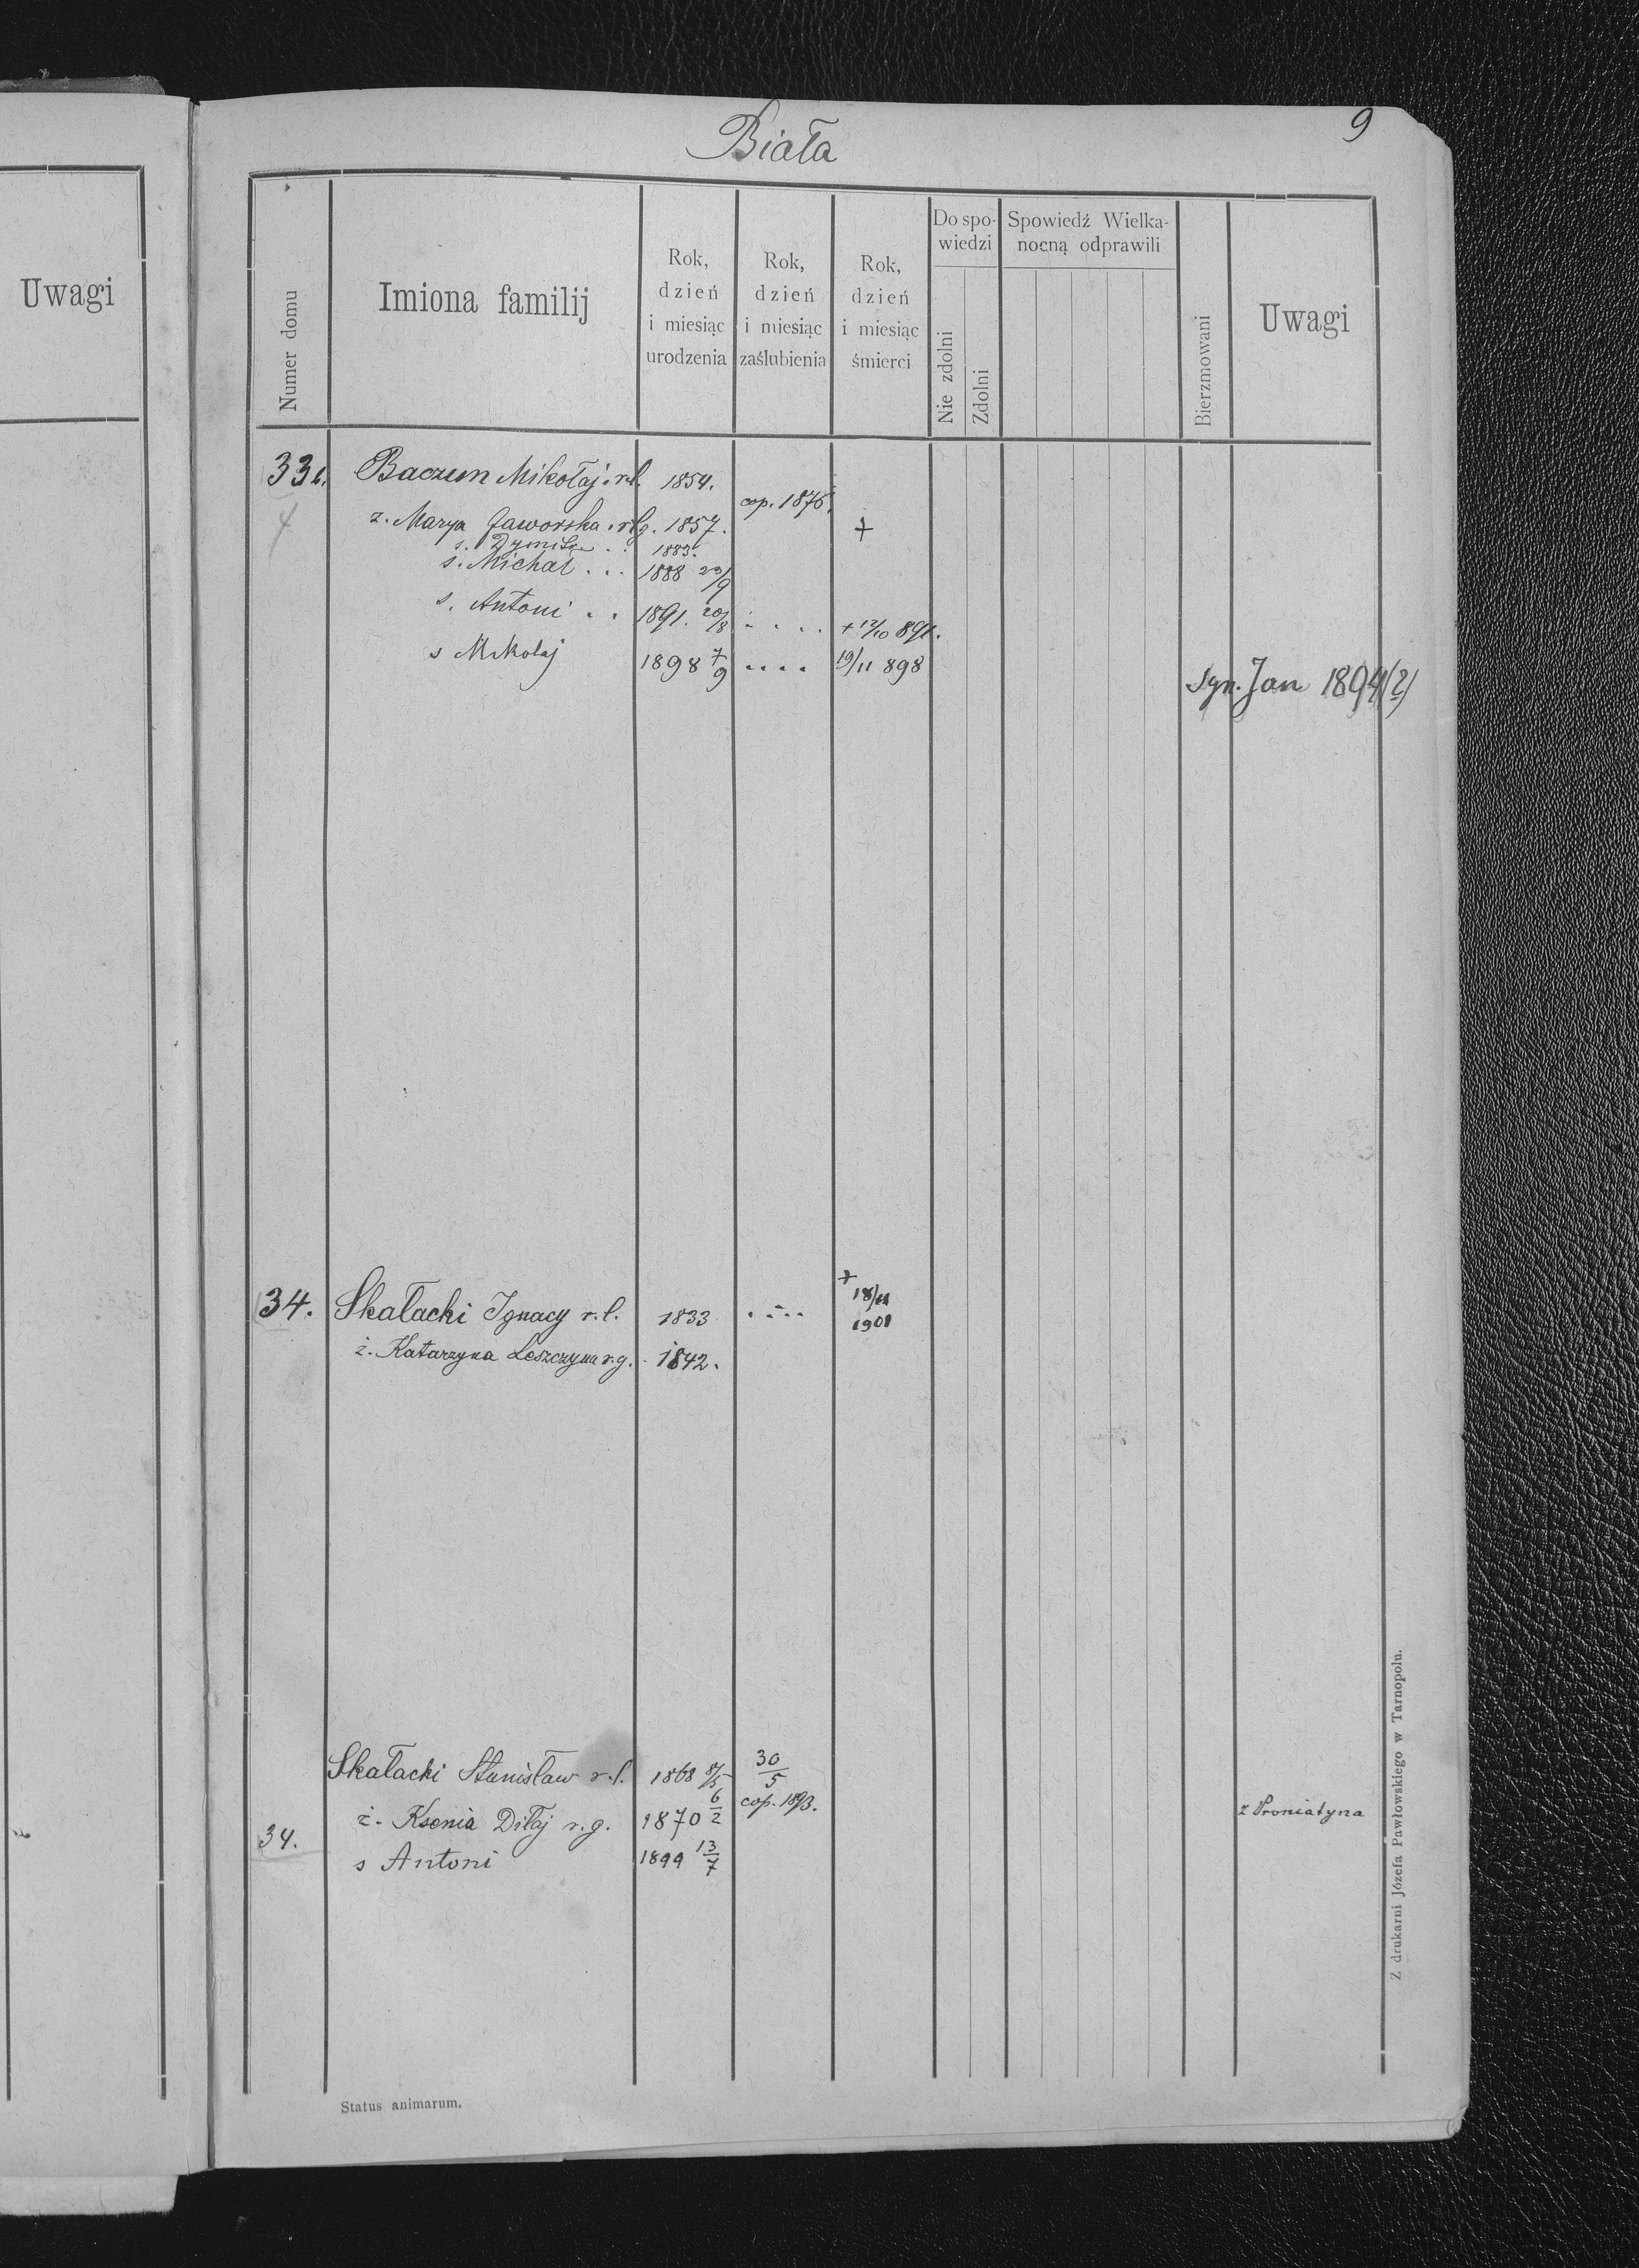 Biała
9
Uwagi
Numer domu
Imiona familij
Rok, dzień i miesiąc urodzenia
Rok, dzień i miesiąc zaślubienia
Rok, dzień i miesiąc śmierci
Do spo-
wiedzi
Nie zdolni
Zdolni
Spowiedź Wielka-
nocną odprawili
Bierzmowani
Uwagi
33 Baczun Mikołaj r.l. 1854.
cop. 1876.
4 ż. Marya Jaworska r.g. 1857. +
s. Dymitr . . 1883.
s. Michał . . . 1888 23/9
s. Antoni . . 1891. 20/8 . . . . + 12/10 891.
s Mikołaj 1898 7/9 . . . . 19/11 898
Syn. Jan 1894(?)
34. Skałacki Ignacy r.l. 1833 . . . . + 18/11 1901
ż. Katarzyna Leszczyna r.g. 1842.
Skałacki Stanisław r.l. 1868 8/5 30/5
ż. Ksenia Diłaj r.g. 1870 6/2 cop. 1893. z Proniatyna
34. s Antoni 1899 13/7
Status animarum.
Z drukarni Józefa Pawłowskiego w Tarnopolu.